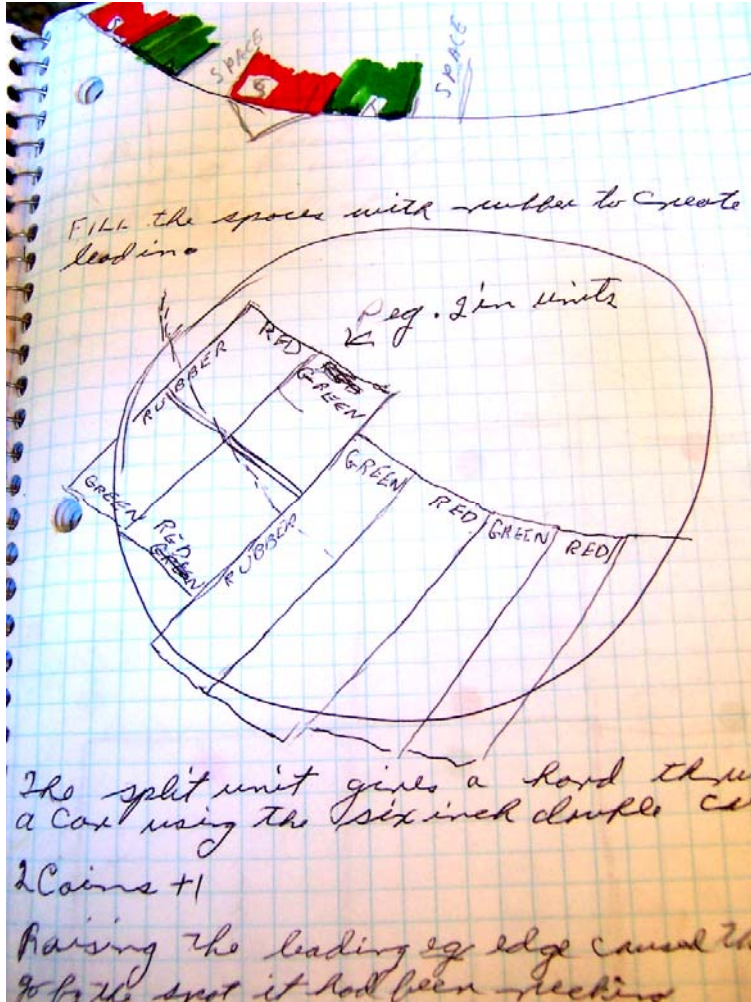 S
SPACE
SPACE
FILL the spaces with rubber to create
lead in.
Reg. 2in units
RUBBER
RED
GREEN
GREEN
RED
GREEN
RUBBER
GREEN
RED
GREEN
RED
The split unit gives a hard
a car using the six inch double
2 Coins +1
Raising the leading eg edge caused
go by the spot it had been